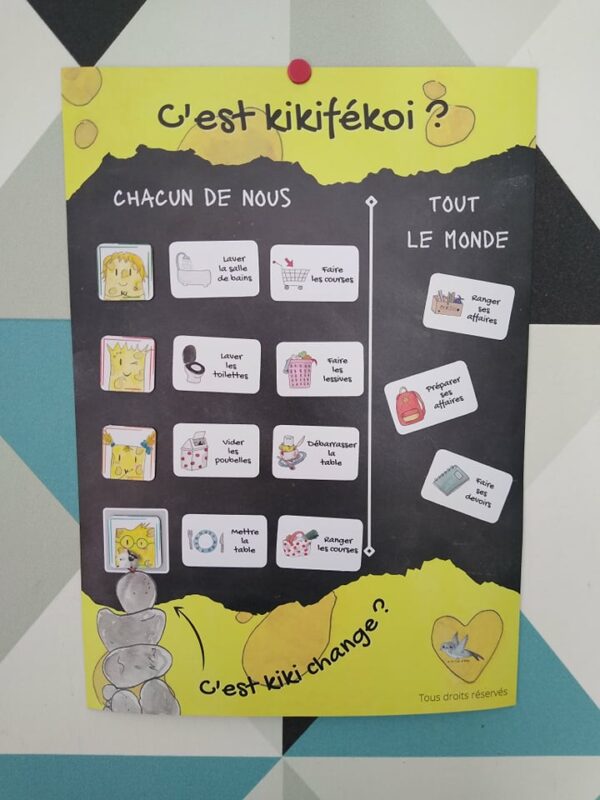 C'est kikifékoi ?
CHACUN DE NOUS
TOUT
LE MONDE
Laver
la salle
de bains
Faire
les courses
Laver
les
toilettes
Faire
les
lessives
Vider
les
poubelles
Débarrasser
la
table
Mettre
la
table
Ranger
les courses
Ranger
ses
affaires
Préparer
ses
affaires
Faire
ses
devoirs
C'est kiki change ?
Tous droits réservés